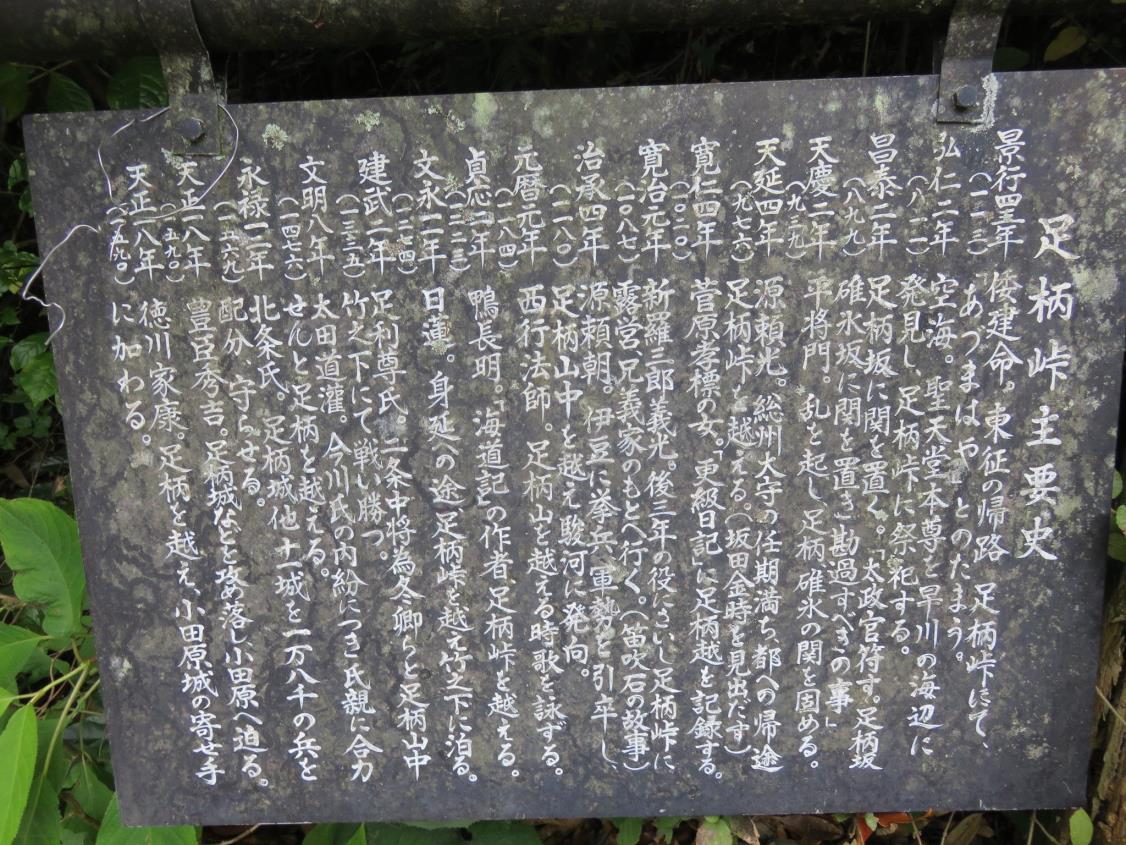 足柄峠主要史
景行四十年 倭建命。東征の帰路 足柄峠にて、
(一一三) あづまはや とのたまう。
弘仁二年 空海。聖天堂本尊を早川の海辺に
(八一一) 発見し、足柄峠に祭祀する。
昌泰二年 足柄坂に関を置く。「太政官符す。足柄坂
(八九九) 碓氷坂に関を置き勘過すべきの事」
天慶二年 平将門。乱を起し足柄 碓氷の関を固める。
(九三九)
天延四年 源頼光。総州大守の任期満ち、都への帰途
(九七六) 足柄峠を越える。(坂田金時を見出だす)
寛仁四年 菅原孝標の女。「更級日記」に足柄越を記録する。
(一〇二〇)
寛治元年 新羅三郎義光。後三年の役にさいし足柄峠に
(一〇八七) 露営、兄義家のもとへ行く。(笛吹石の故事)
治承四年 源頼朝。伊豆に挙兵、軍勢を引卒し、
(一一八〇) 足柄山中を越え駿河に発向。
元暦元年 西行法師。足柄山を越える時歌を詠する。
(一一八四)
貞応二年 鴨長明。「海道記」の作者足柄峠を越える。
(一二二三)
文永十一年 日蓮。身延への途、足柄峠を越え竹之下に泊る。
(一二七四)
建武二年 足利尊氏。二条中将為冬卿らと足柄山中
(一三三五) 竹之下にて戦い勝つ。
文明八年 太田道灌。今川氏の内紛につき氏親に合力
(一四七六) せんと足柄を越える。
永禄十二年 北条氏。足柄城他十一城を一万八千の兵を
(一五六九) 配分、守らせる。
天正十八年 豊臣秀吉。足柄城などを攻め落し小田原へ迫る。
(一五九〇)
天正十八年 徳川家康。足柄を越え、小田原城の寄せ手
(一五九〇) に加わる。